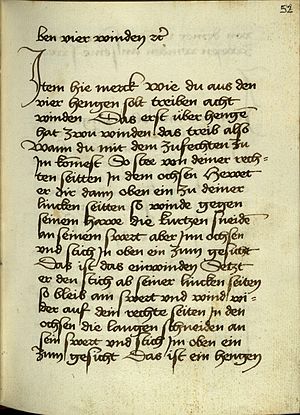 52
ben vier winden etc
Item hie merck wie du aus den
vier hengen solt treiben acht
winden Das erst über henge
hat zwu winden das treib also
Wann du mit dem zufechten zu
Im komest So stee von deiner rech-
ten seitten in dem ochsen Hewet
er dir dann oben ein zu deiner
lincken seitten so winde gegen
seinem hawe die kurtzen sneide
an seinem swert aber Inn ochsen
und stich Im oben ein zum gesicht
Das ist das ein winden Setzt
er den stich ab seiner lincken seiten
so bleib am swert und wind wi-
der auf dein rechte seiten in den
ochsen die langen schneiden an
sein swert und stich Im oben ein
zum gesicht Das ist ein hengen